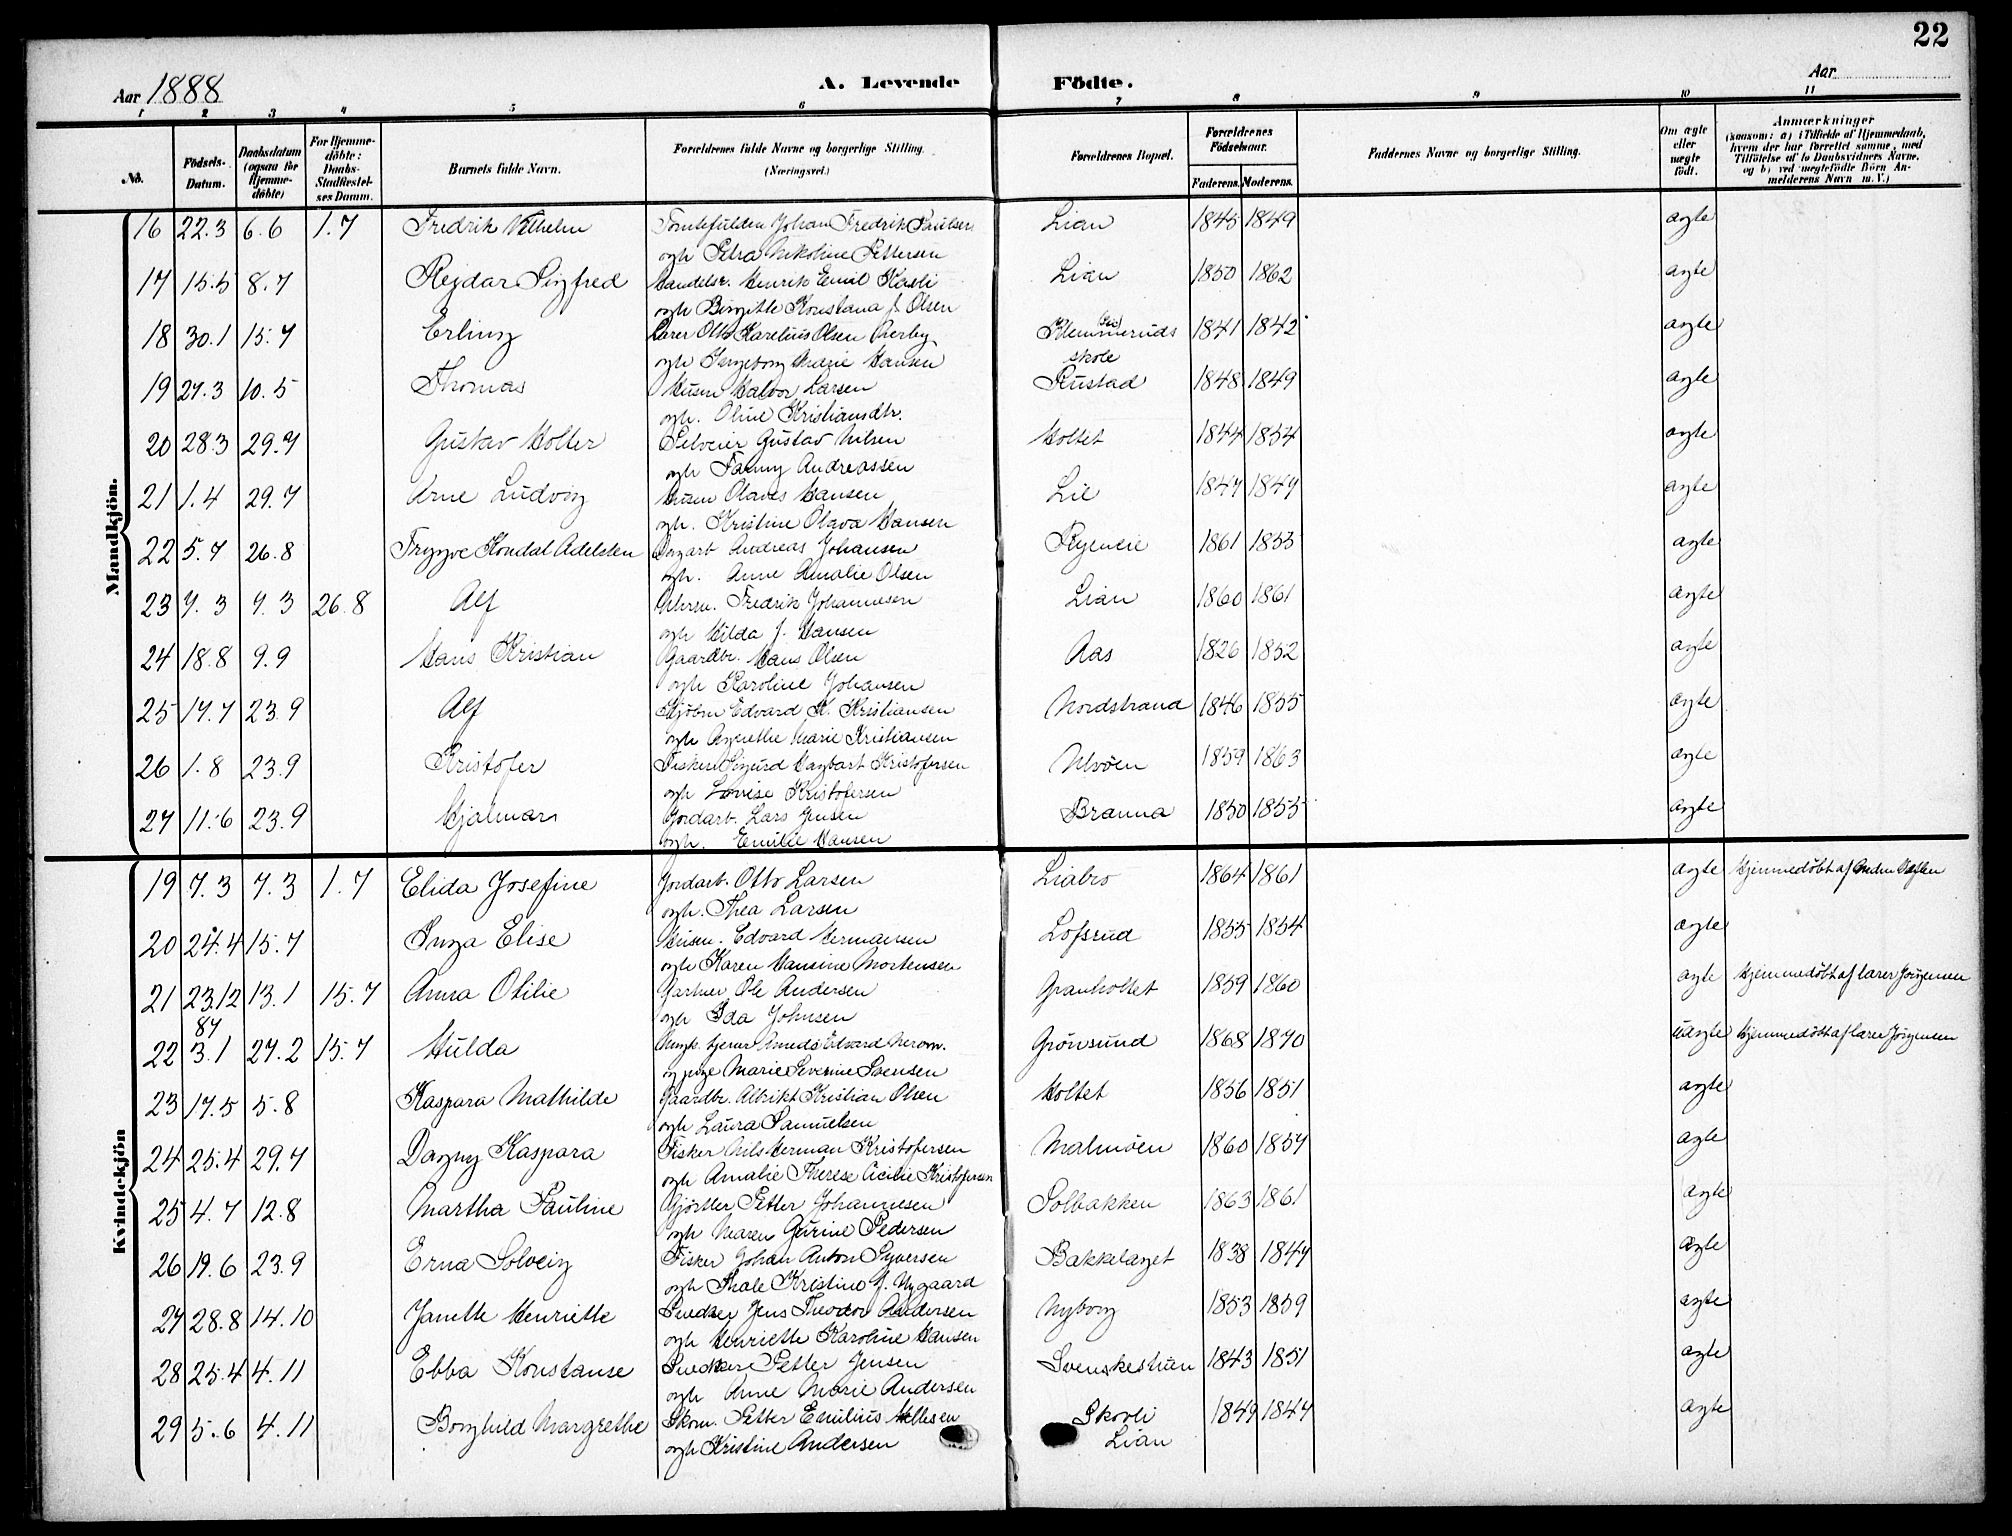 22
Aar 1888
A. Levende Födte.
Aar
1 2 3 4 5 6 7 8 9 10 11
No.
Födsels-Datum.
Daabsdatum (ogsaa for Hjemme-döbte)
For Hjemme-döbte: Daabs-Stadfæstel-ses Datum.
Barnets fulde Navn.
Forældrenes fulde Navne og borgerlige Stilling. (Næringsvei.)
Forældrenes Bopæl.
Forældrenes Födselsaar.
Faderens. Moderens.
Faddernes Navne og borgerlige Stilling.
Om ægte eller uægte födt.
Anmærkninger
(saasom: a) i Tilfælde af Hjemmedaab,
hvem der har forrettet samme, med
Tilföielse af to Daabsvidners Navne,
og b) ved uægtefödte Börn An-
melderens Navn m. V.)
Mandkjön.
16 22.3 6.6 1.7 Fredrik Vilhelm Johan Fredrik Paulsen Lian 1845 1849 ægte
ogh Petra Nikoline Pettersen
17 15.5 8.7 Rejdar Sigfred Handelsr. Henrik Emil Kasli Lian 1850 1862 ægte
ogh Birgitte Konstana J. Olsen
18 30.1 15.7 Erling Lærer Otto Karelius Olsen Klemmeruds 1841 1842 ægte
ogh Ingeborg Marie Hansen skole
19 27.3 10.5 Thomas Husm Halvor Larsen Rustad 1848 1849 ægte
ogh. Oline Kristiansdtr.
20 28.3 29.7 Gustav Holter Selveier Gustav Nilsen Holtet 1844 1854 ægte
ogh Fanny Andreassen
21 1.4 29.7 Arne Ludvig Husm Olaves Hansen Lie 1847 1849 ægte
ogh. Kristine Olava Hansen
22 5.7 26.8 Trygve Kondal Adelsten Dagarb Andreas Johansen 1861 1855 ægte
ogh. Anne Amalie Olsen
23 7.3 7.3 26.8 Alf Fredrik Johannesen Lian 1860 1861 ægte
ogh Hilda J. Hansen
24 18.8 9.9 Hans Kristian Gaardbr. Hans Olsen Aas 1826 1852 ægte
ogh Karoline Johansen
25 17.7 23.9 Alf Edvard K. Kristiansen Nordstrand 1846 1855 ægte
ogh Agnethe Marie Kristiansen
26 1.8 23.9 Kristofer Fisker Sigurd Dagbart Kristofersen Ulvöen 1859 1863 ægte
ogh Lovise Kristofersen
27 11.6 23.9 Hjalmar Jordarb. Lars Jensen Branna 1850 1855 ægte
ogh. Emilie Hansen
Kvindekjön
19 7.3 7.3 1.7 Elida Josefine Jordarb. Otto Larsen Liabro 1864 1861 ægte Hjemmedøbt af
ogh. Thea Larsen
20 24.4 15.7 Inga Elise Husm. Edvard Hermansen Lofsrud 1855 1854 ægte
ogh Karen Hansine Mortensen
21 23.12 87 13.1 15.7 Anna Otilie Gartner Ole Andersen Granholtet 1859 1860 ægte Hjemmedøbt af lærer Jørgensen
ogh Ida Johnsen
22 3.1 27.2 15.7 Hulda Edvard Grönsund 1868 1870 uægte Hjemmedøbt af lærer Jørgensen
og pige Marie Severine Svensen
23 17.5 5.8 Kaspara Mathilde Gaardbr. Albrikt Kristian Olsen Holtet 1856 1851 ægte
ogh Laura Samuelsen
24 25.4 29.7 Dagny Kaspara Fisker Nils Herman Kristofersen Malmöen 1860 1857 ægte
ogh Amalie Therese Cicilie Kristofersen
25 4.7 12.8 Martha Pauline Gjörtler Petter Johannesen Solbakken 1863 1861 ægte
ogh Maren Gurine Pedersen
26 19.6 23.9 Erna Solveig Fisker Johan Anton Syversen Bakkelaget 1838 1847 ægte
ogh Thale Kristine J. Nygaard
27 28.8 14.10 Janette Henriette Snedker Jens Theodor Andersen Nyborg 1853 1859 ægte
ogh Henriette Karoline Hansen
28 25.4 4.11 Ebba Konstanse Snedker Petter Jensen Svenskestuen 1843 1851 ægte
ogh Anne Marie Andersen
29 5.6 4.11 Borghild Margrethe Skom. Petter Emilius Skovli 1849 1847 ægte
ogh Kristine Andersen Lian